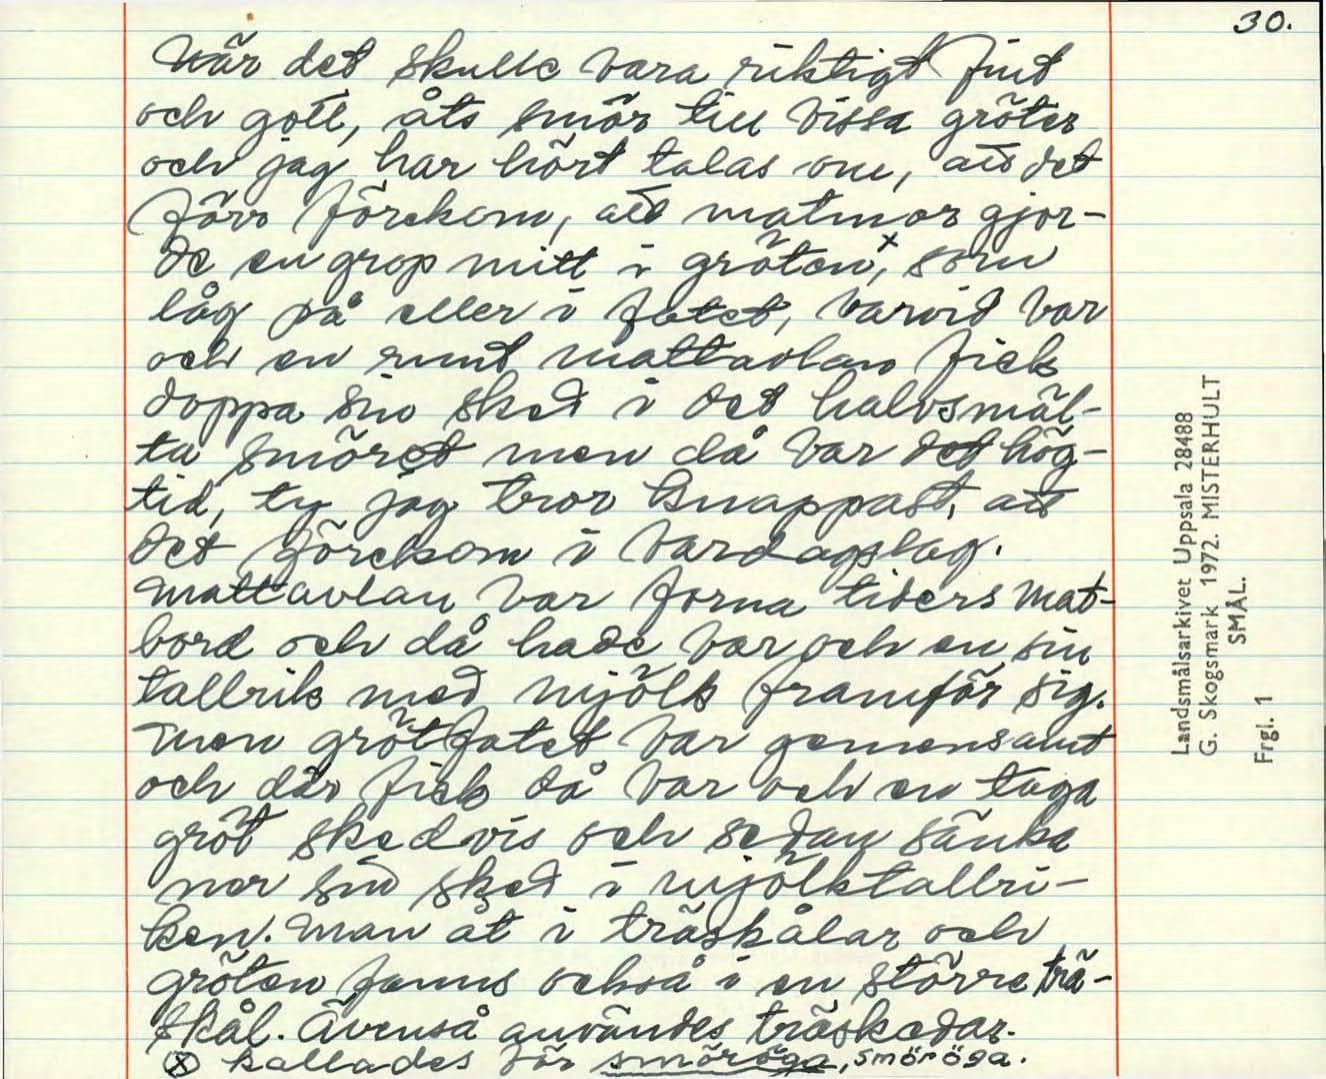 30.
När det skulle vara riktigt fint
och gott, åts smör till vissa gröter
och jag har hört talas om, att det
förr förekom, att matmor gjor-
de en grop mitt i gröten,x som
låg på eller i fatet, varvid var
och en runt mattavlan fick
doppa sin sked i det halvsmäl-
ta smöret men då var det hög-
tid, ty jag tror knappast, att
det förekom i vardagslag.
Mattavlan var forna tiders mat-
bord och då hade var och en sin
tallrik med mjölk framför sig.
Men grötfatet var gemensamt
och där fick då var och en taga
gröt skedvis och sedan sänka
ner sin sked i mjölktallri-
ken. Man åt i träskålar och
gröten fanns också i en större trä-
skål. Ävenså användes träskedar.
(x) kallades för smöröga, smöröga.
Landsmålsarkivet Uppsala 28488
G. Skogsmark 1972. MISTERHULT
SMÅL.
Frgl. 1